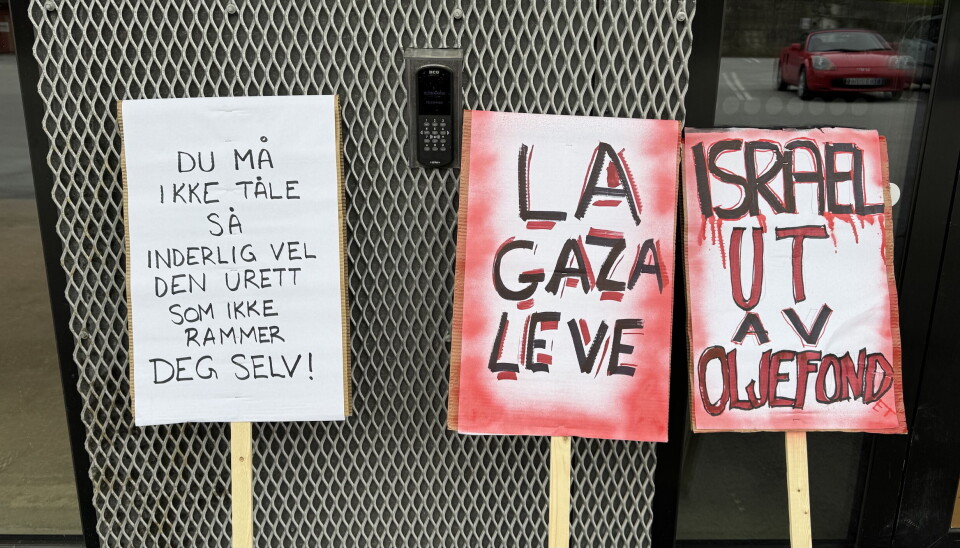 DU MÅ
IKKE TÅLE
SÅ
INDERLIG VEL
DEN URETT
SOM IKKE
RAMMER
DEG SELV!
LA
GAZA
LEVE
ISRAEL
UT
AV
OLJEFOND
ET